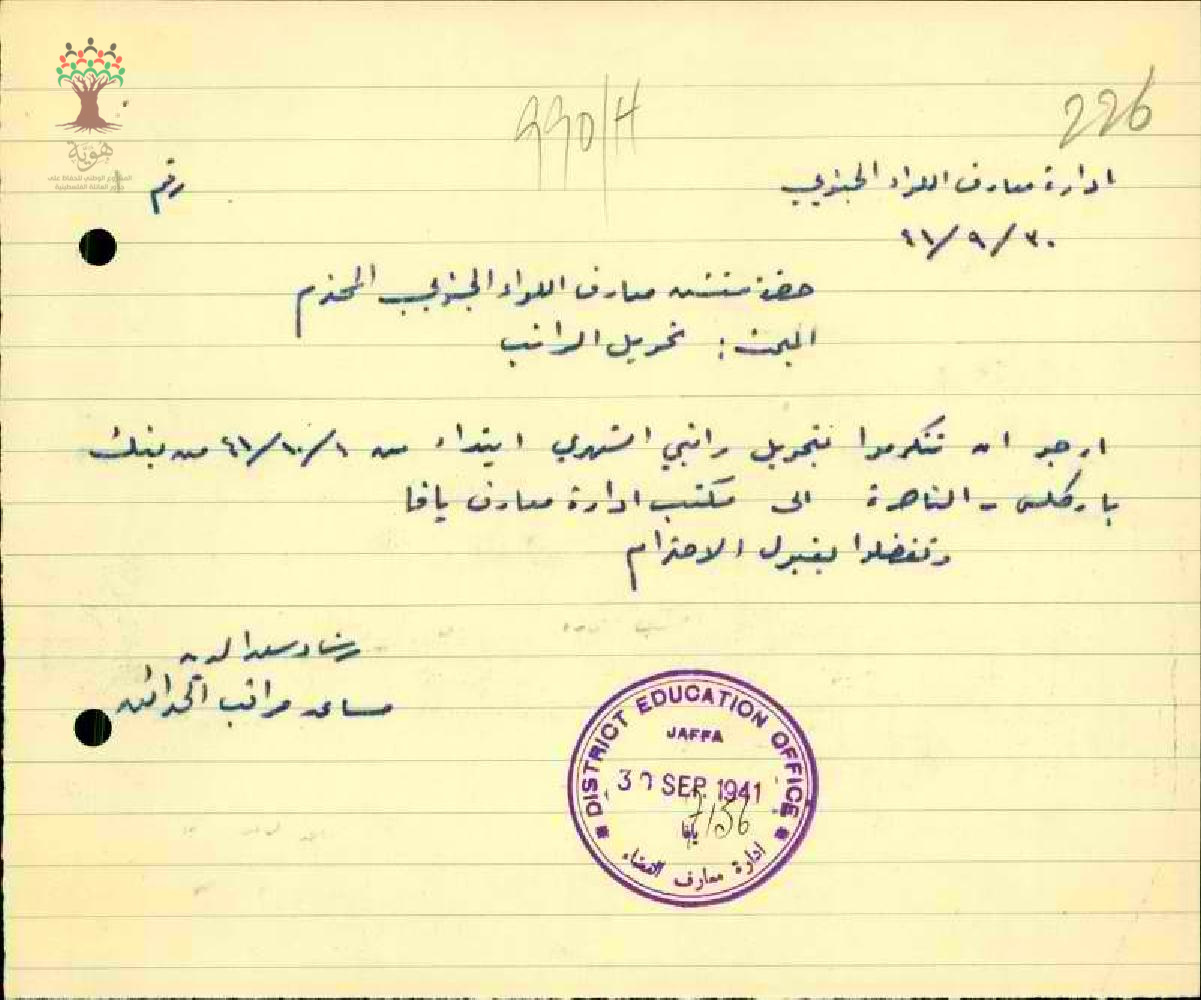 226
990/H
ادارة معارف اللواء الجنوبي
رقم
٣٠/٩/٤١
حضرة مفتش معارف اللواء الجنوبي المحترم
البحث : تحويل الراتب
ارجو ان تتكرموا بتحويل راتبي الشهري ابتداء من ٤١/١٠/١ من بنك
باركلس - الناصرة الى مكتب ادارة معارف يافا
وتفضلوا بقبول الاحترام
رشاد سعد الدين
مساعد مراقب الحدائق
DISTRICT EDUCATION OFFICE
JAFFA
30 SEP. 1941
7156
يافا
ادارة معارف القضاء
هوية
المشروع الوطني للحفاظ على
جذور العائلة الفلسطينية